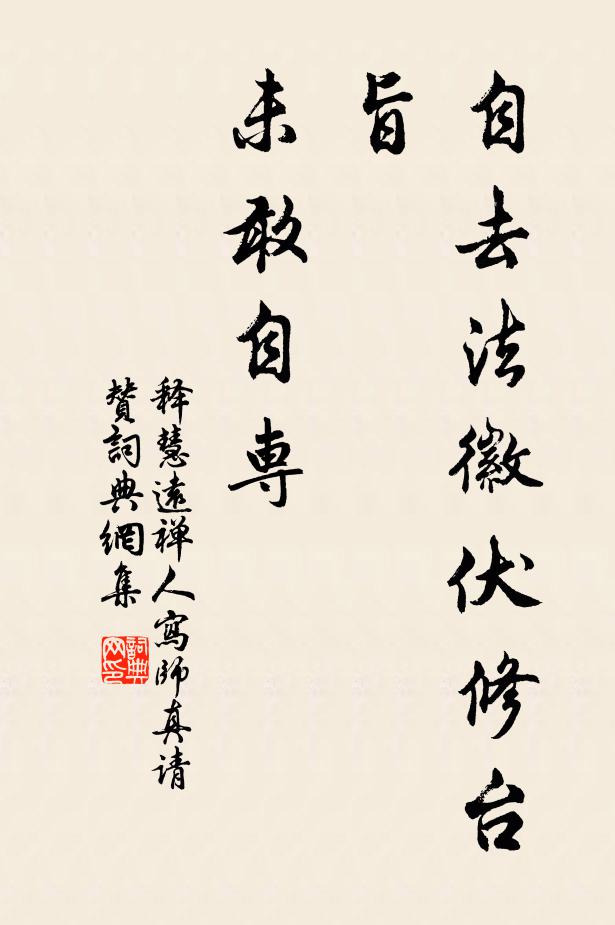 自去法徽伏修台
旨
未敢自専
释慧遠禅人寫師真请
賛詞典網集
詞典网印